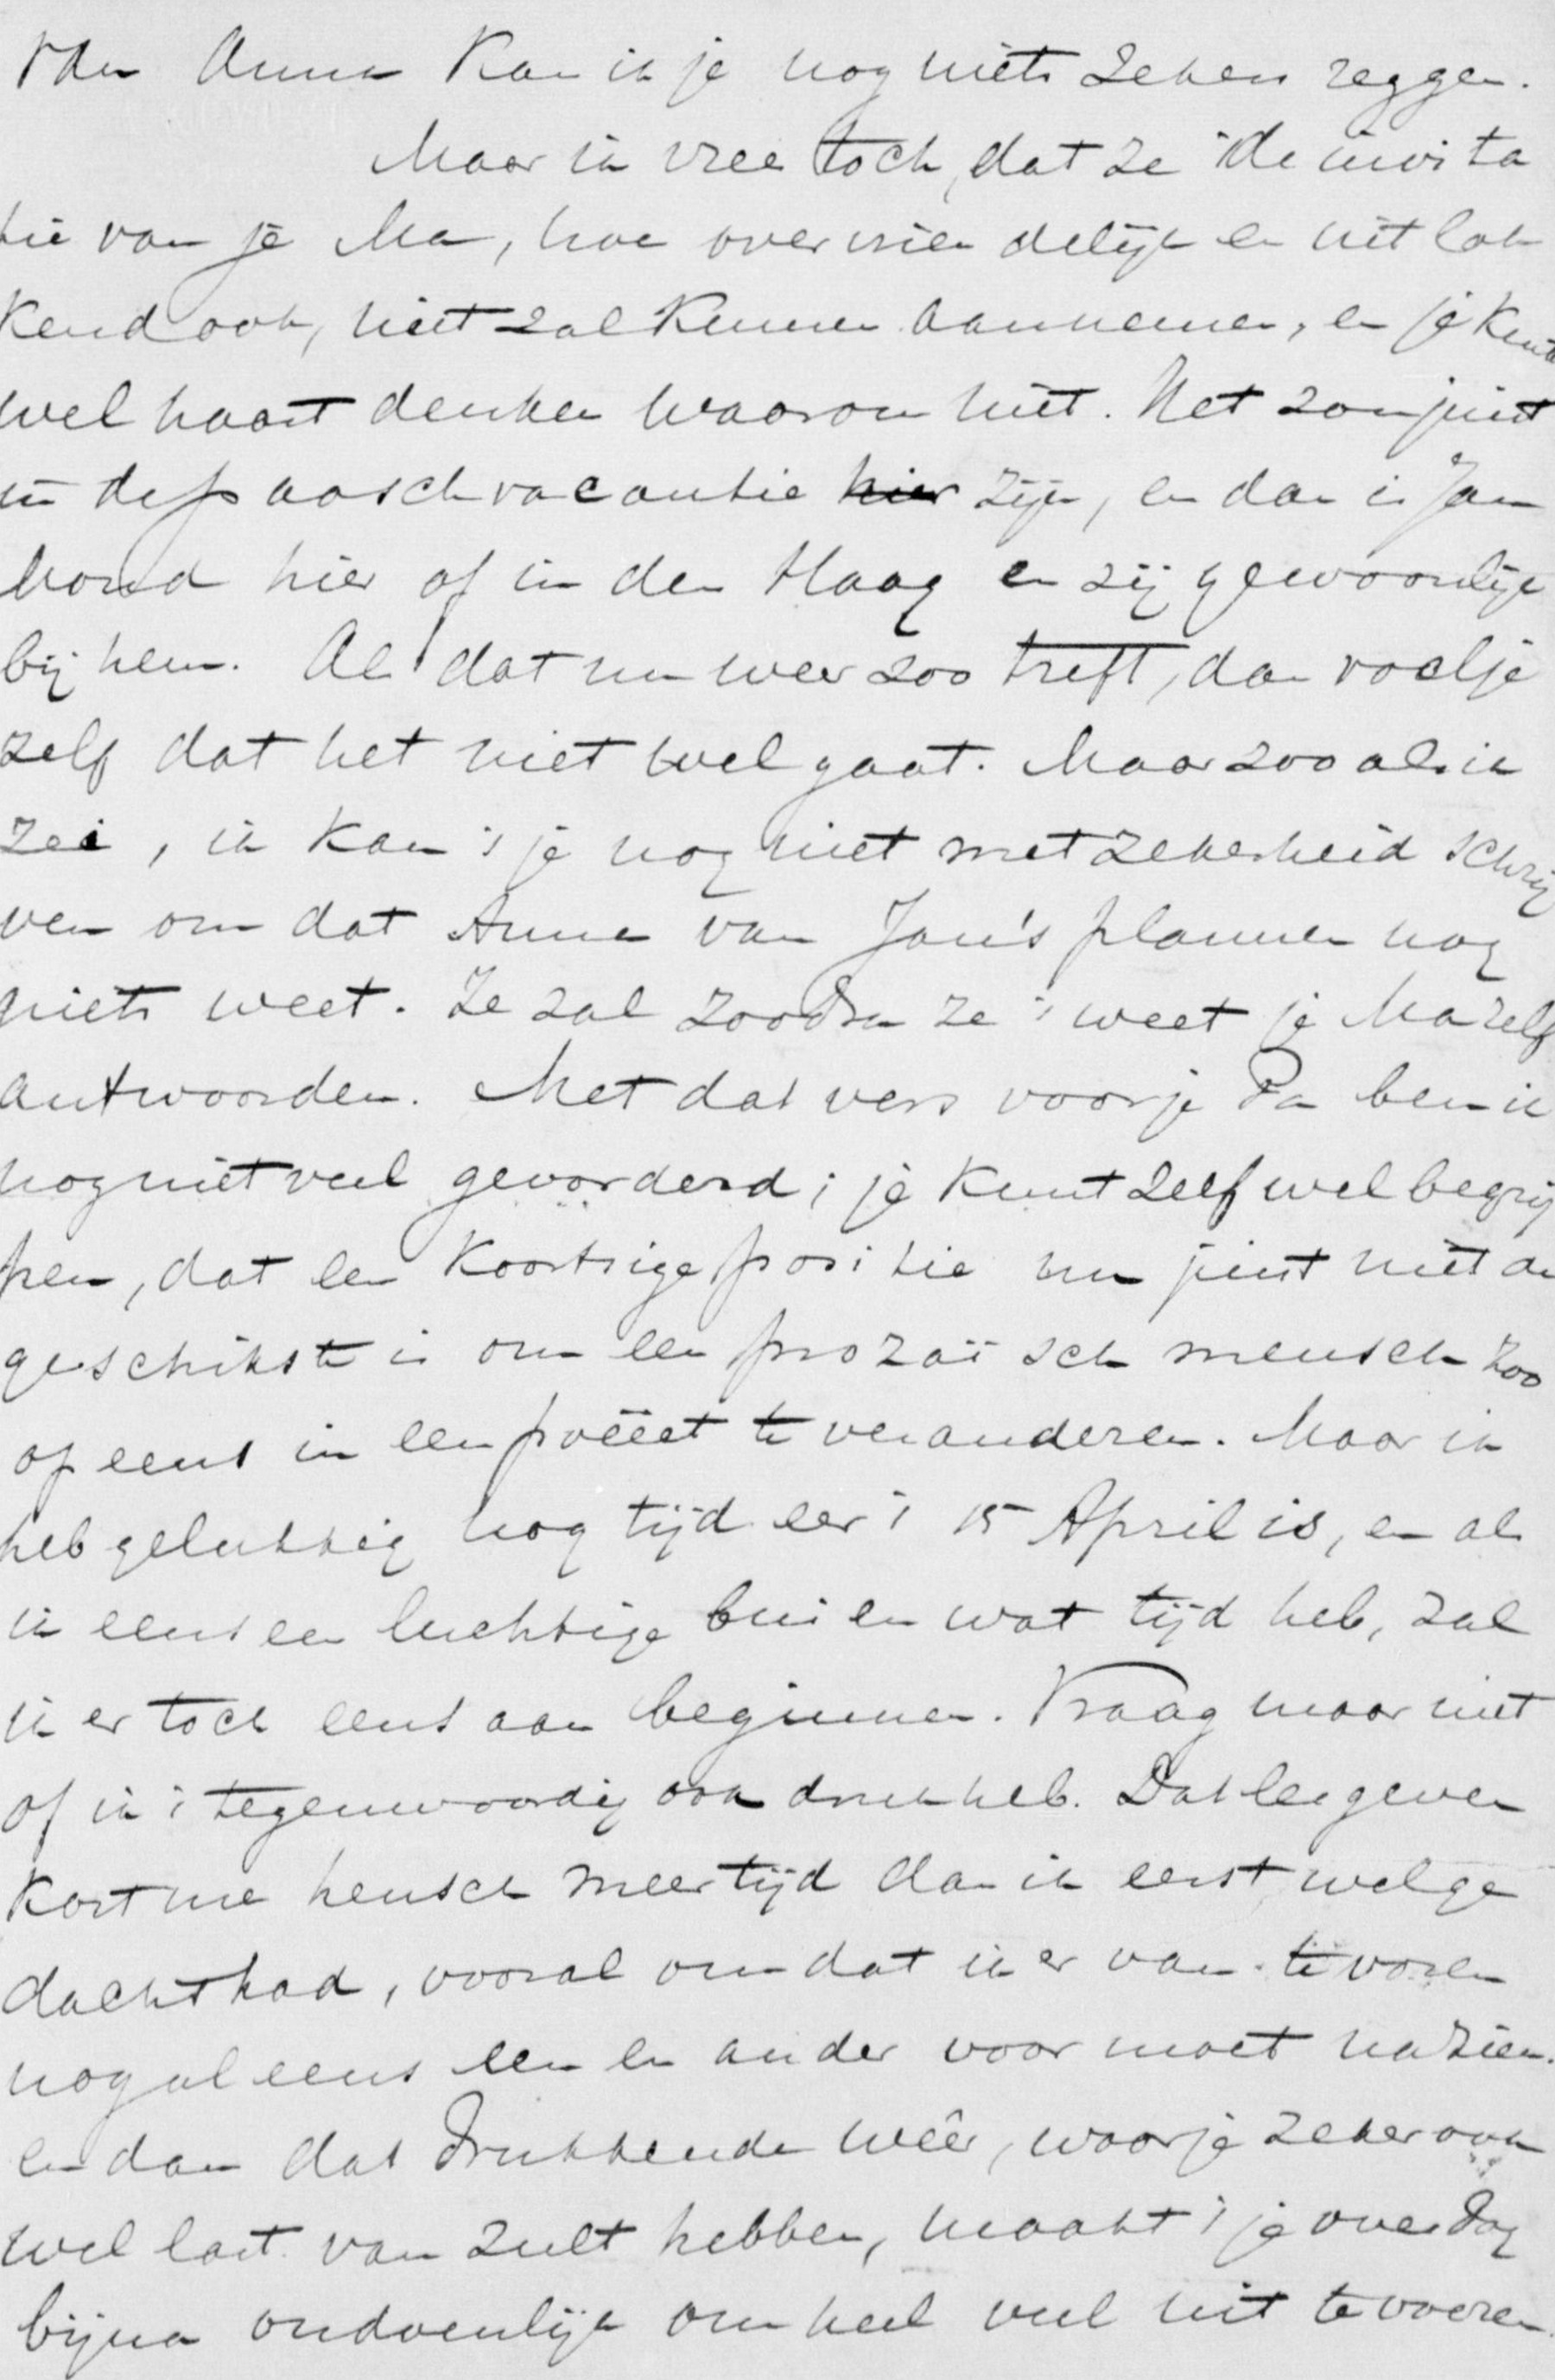 Van Anna kan ik je nog niets zekers zeggen.
Maar ik vrees toch, dat ze de invita
tie van je Ma, hoe overvriendelijk en uitlok
kend ook, niet zal kunnen aannemen, en je kunt
wel haast denken waarom niet. Het zou juist
in de paaschvacantie hier zijn, en dan is Jan
Hond hier of in den Haag en zij gewoonlijk
bij hem. Als dat nu weer zoo treft, dan voel je
zelf dat het niet wel gaat. Maar zooals ik
zei, ik kan 't je nog niet met zekerheid schrij
ven omdat Anna van Jan's plannen nog
niets weet. Ze zal zoodra ze 't weet je Ma zelf
antwoorden. Met dat vers voor je Pa ben ik
nog niet veel gevorderd; je kunt zelf wel begrij
pen, dat een koortsige positie nu juist niet de
geschikste is om een prozaïsch mensch zoo
opeens in een poëet te veranderen. Maar ik
heb gelukkig nog tijd eer 't 15 April is, en als
ik eens een luchtige bui en wat tijd heb, zal
ik er toch eens aan beginnen. Vraag maar niet
of ik 't tegenwoordig ook druk heb. Dat lesgeven
kost me heusch meer tijd dan ik eerst wel ge
dacht had, vooral omdat ik er van te voren
nog al eens een en ander voor moet nazien.
en dan dat drukkende weêr, waar je zeker ook
wel last van zult hebben, maakt 't je overdag
bijna ondoenlijk om heel veel uit te voeren.